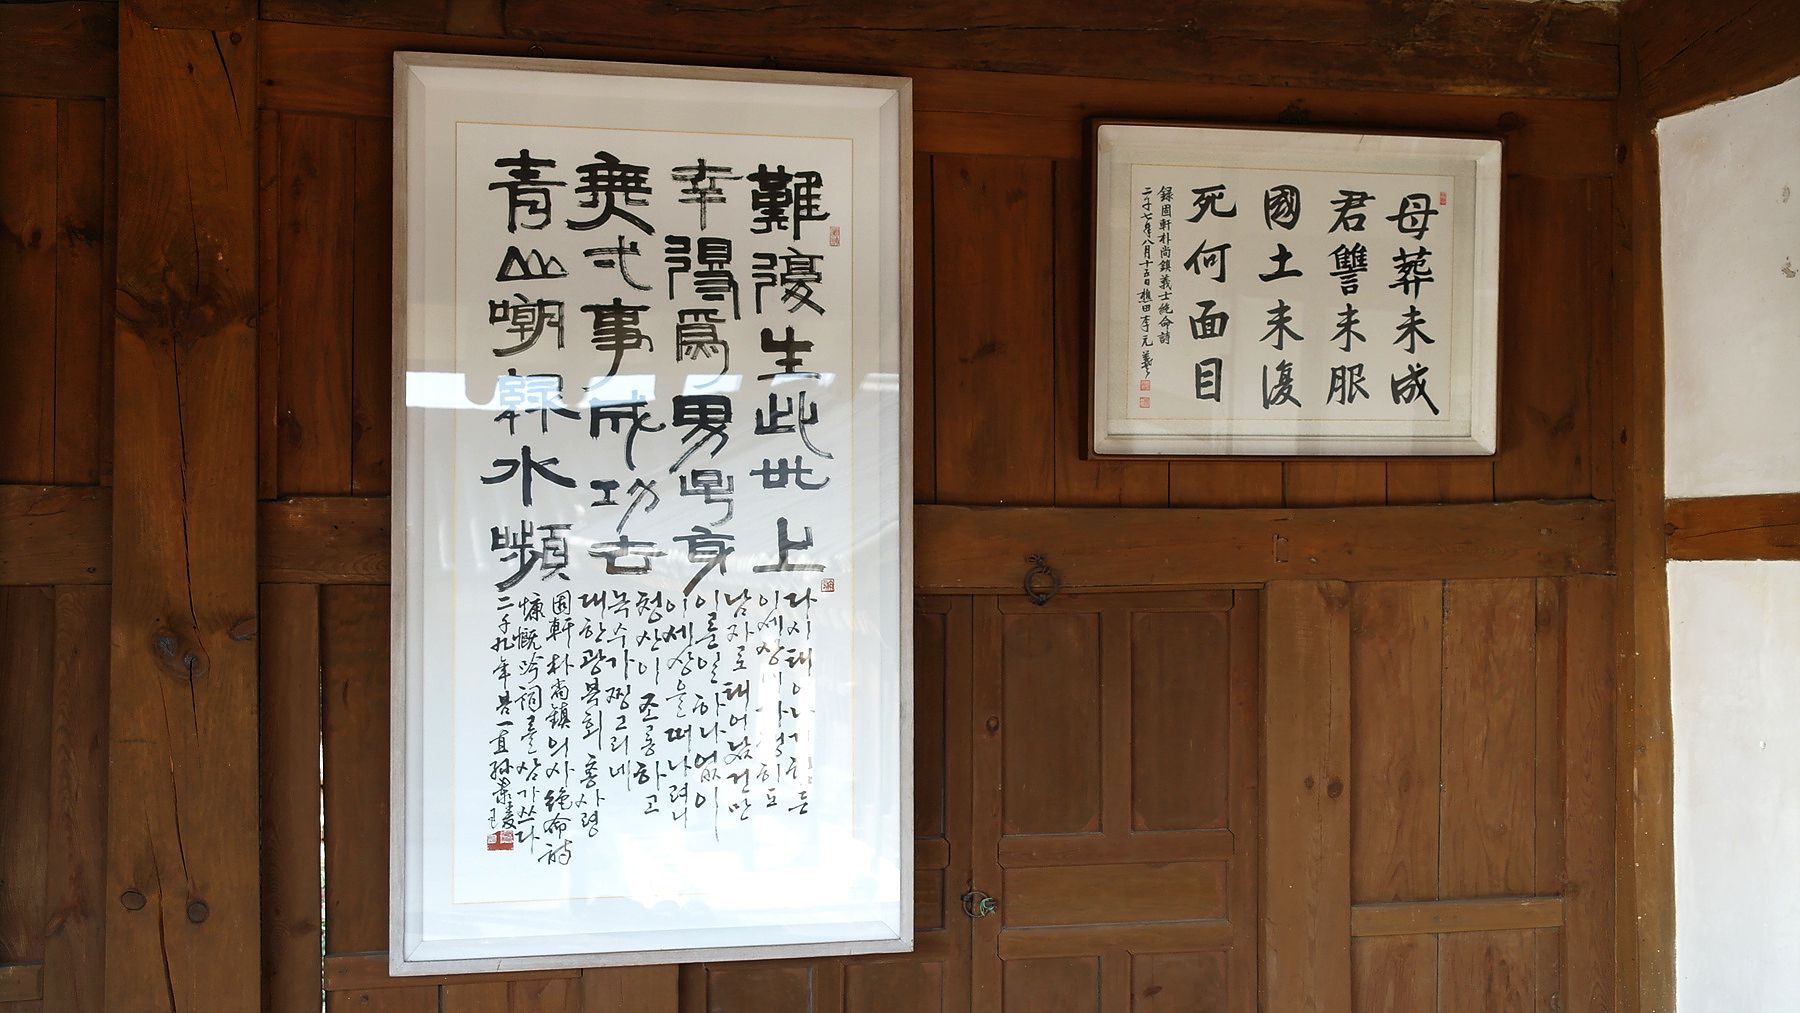 難復生此世上
幸得爲男子身
無弌事成功去
青山嘲綠水嚬
다시 태어나기 힘든
이 세상에 다행히도
남자로 태어났건만
이룬 일 하나 없이
이 세상을 떠나려니
청산이 조롱하고
녹수가 찡그리네
대한광복회 총사령
固軒 朴尙鎮 의사 絶命詩
慷慨吟詞를 삼가 쓰다
二千九年 一直 孫
母葬未成
君讐未服
國土未復
死何面目
録固軒朴尚鎮義士絶命詩
二千七年八月十五日 樵田李元